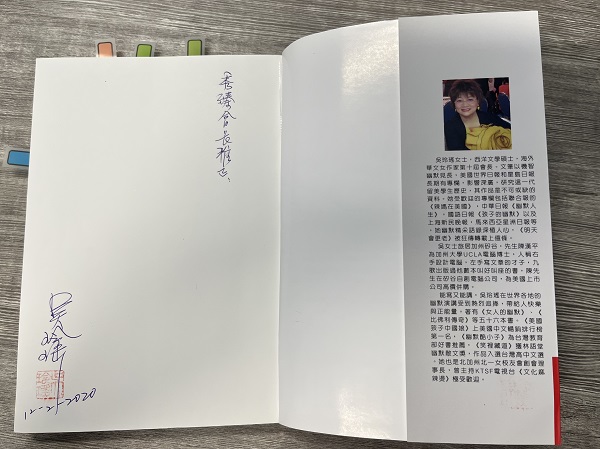 秀臻會長雅正
吳玲瑤
12-21-2020
吳玲瑤女士,西洋文學碩士,海外
華文女作家第十屆會長。文筆以機智
幽默見長。美國世界日報和星島日報
長期有專欄,影響深廣。研究這一代
留美學生歷史,其作品是不可或缺的
資料。她受歡迎的專欄包括聯合報的
《辣媽在美國》、中華日報《幽默人
生》、國語日報《孩子的幽默》以及
上海新民晚報、馬來西亞星洲日報等
。她幽默精采語錄深植人心,《明天
會更老》被狂傳轉載上億條。
吳女士旅居加州矽谷,先生陳漢平
為加州大學UCLA電腦博士,人稱右
手設計電腦,左手寫文章的才子,九
歌出版過他數本叫好叫座的書。陳先
生在矽谷自創電腦公司,為美國上市
公司高價併購。
能寫又能講,吳玲瑤在世界各地的
幽默演講受到熱烈迴響,帶給人快樂
與正能量。著有《女人的幽默》、《
比佛利傳奇》等五十六本書。《美國
孩子中國娘》上美國中文暢銷排行榜
第一名,《幽默酷小子》為台灣教育
部好書推薦,《笑裡藏道》獲林語堂
幽默散文獎,作品入選台灣高中文選
。她也是北加州北一女校友會創會理
事長,曾主持KTSF電視台《文化麻
辣燙》極受歡迎。